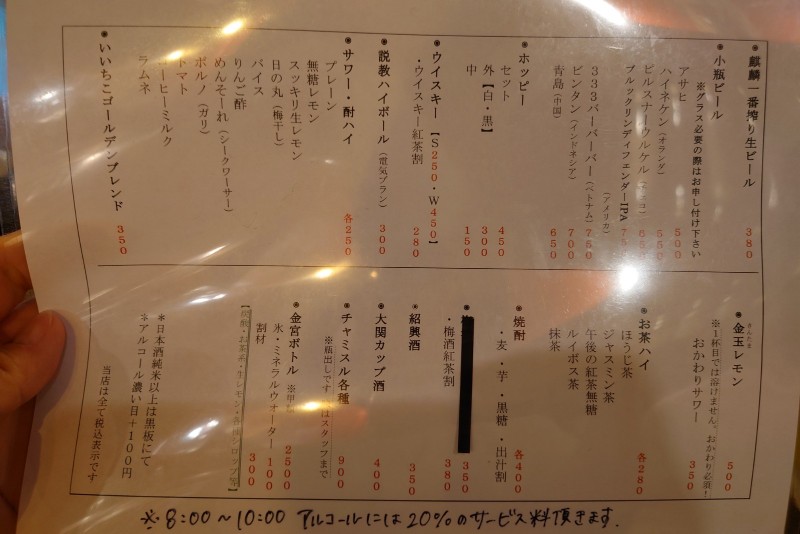 ◉麒麟一番搾り生ビール 380
◉小瓶ビール
※グラス必要の際はお申し付け下さい
アサヒ 500
ハイネケン(オランダ) 550
ピルスナーウルケル 650
ブルックリンディフェンダーIPA
(アメリカ)
333バーバーバー(ベトナム) 750
ビンタン(インドネシア) 700
青島(中国) 650
◉ホッピー
セット 450
外【白・黒】 300
中 150
◉ウイスキー【S250・W450】
・ウイスキー紅茶割 280
◉説教ハイボール(電気ブラン) 300
◉サワー・酎ハイ 各250
プレーン
無糖レモン
スッキリ生レモン
日の丸(梅干し)
バイス
りんご酢
めんそーれ(シークワーサー)
ポルノ(ガリ)
トマト
コーヒーミルク
ラムネ
◉いいちこゴールデンブレンド 350
◉金玉レモン 500
きんたま
※1杯目では溶けません。おかわり必須!
おかわりサワー 350
◉お茶ハイ 各280
ほうじ茶
ジャスミン茶
午後の紅茶無糖
ルイボス茶
抹茶
◉焼酎
・麦・芋・黒糖・出汁割 各400
350
・梅酒紅茶割 380
◉紹興酒 350
◉大関カップ酒 400
◉チャミスル各種 900
※瓶出しです
はスタッフまで
◉金宮ボトル 2500
氷・ミネラルウオーター 100
割材 300
*日本酒純米以上は黒板にて
*アルコール濃い目+100円
当店は全て税込表示です
※8:00~10:00 アルコールには20%のサービス料頂きます.